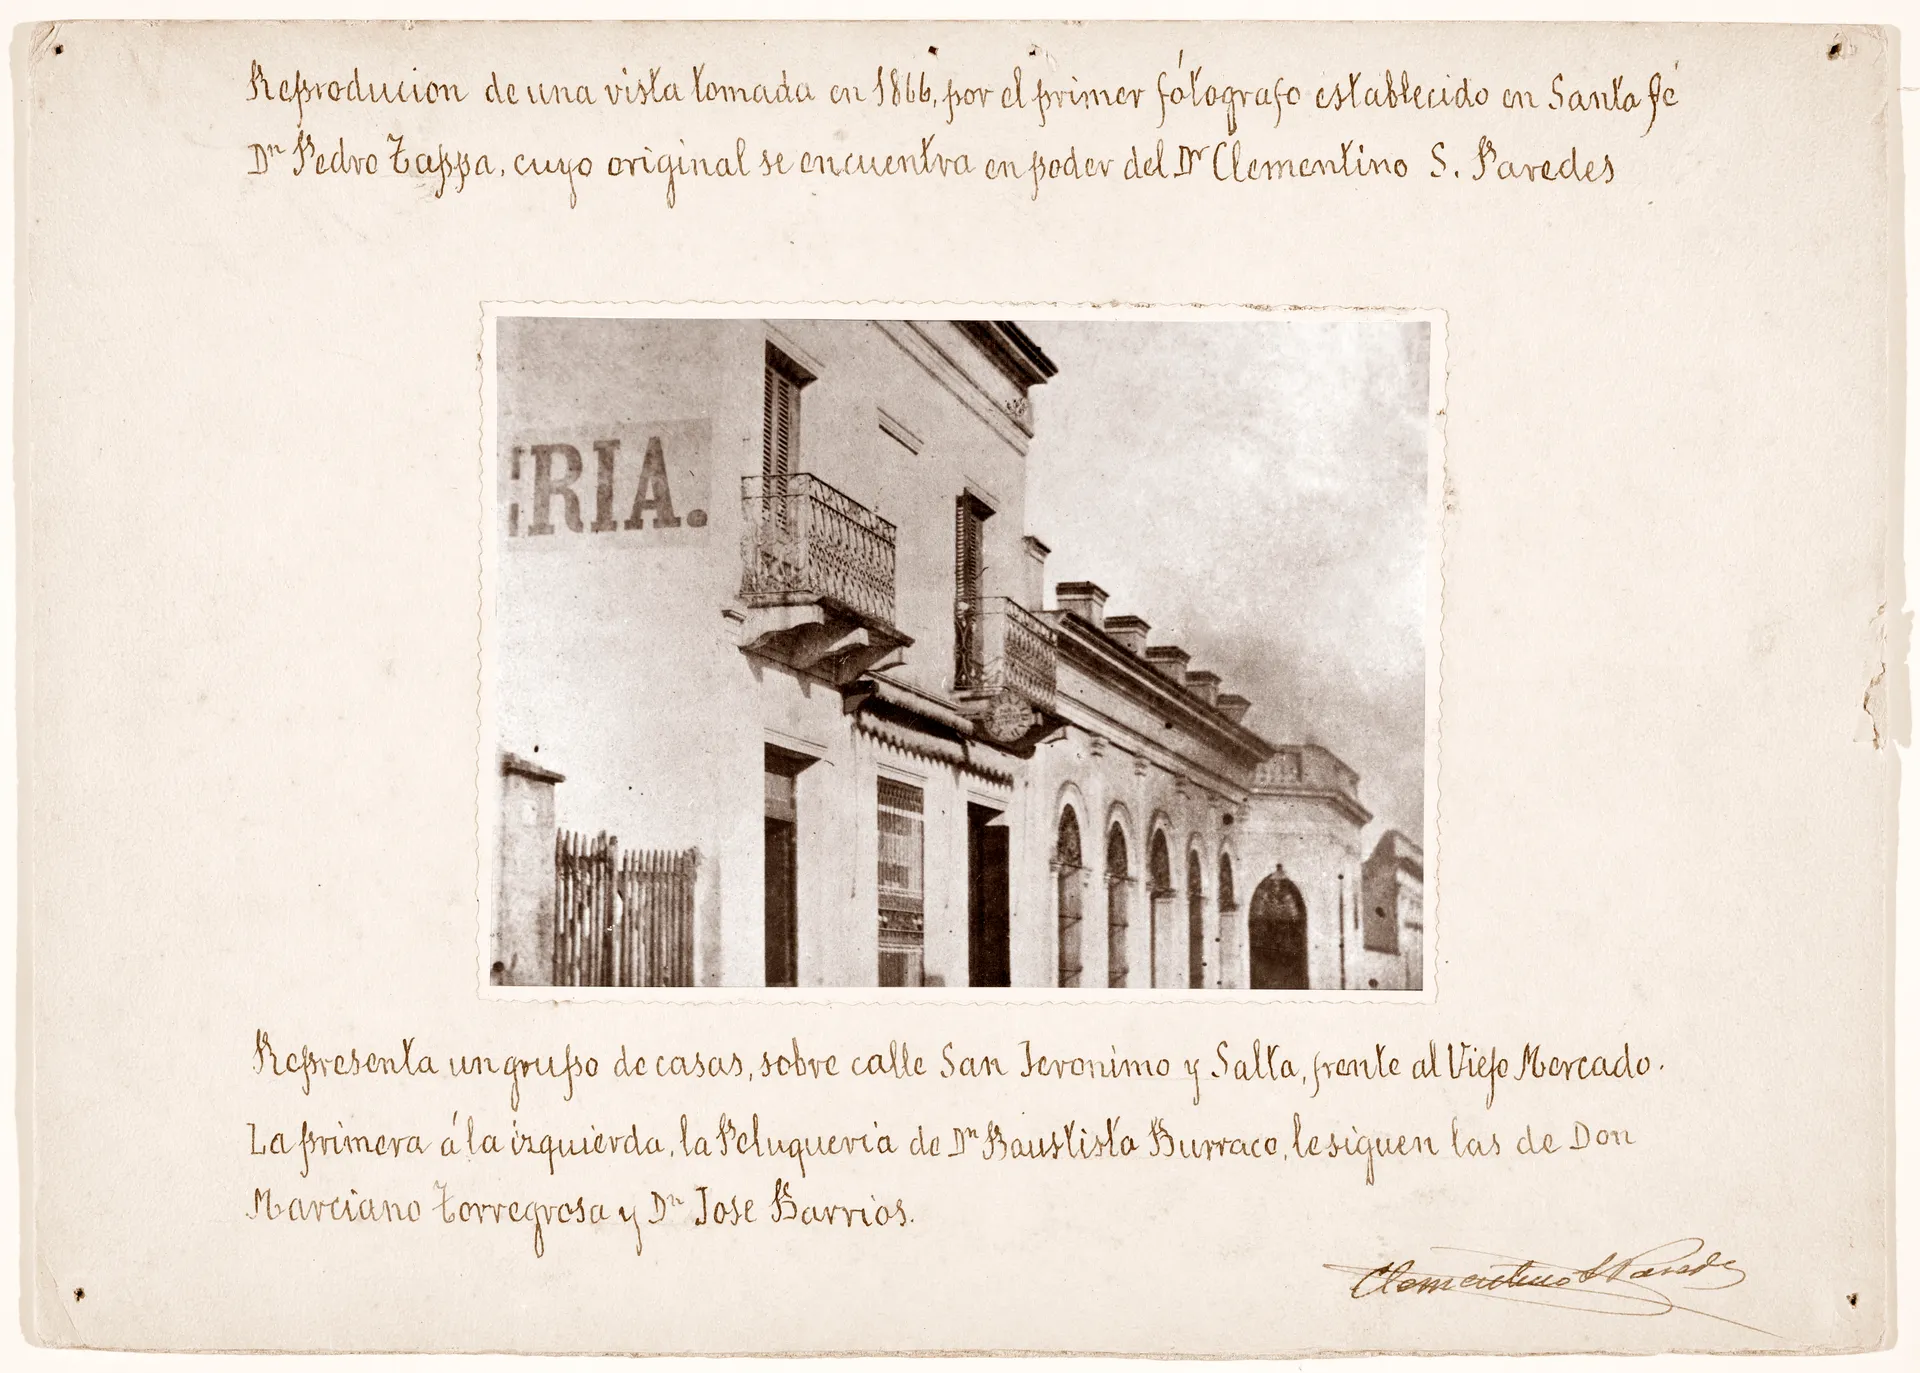 Reproducion de una vista tomada en 1866, por el primer fótografo establecido en Santa fé
Dn Pedro Tappa, cuyo original se encuentra en poder del Dr Clementino S. Paredes
ERIA.
Representa un grupo de casas, sobre calle San Jeronimo y Salta, frente al Viejo Mercado.
La primera á la izquierda, la Peluqueria de Dn Baustista Burraco, le siguen las de Don
Marciano Torregrosa y Dn Jose Barrios.
Clementino S Paredes